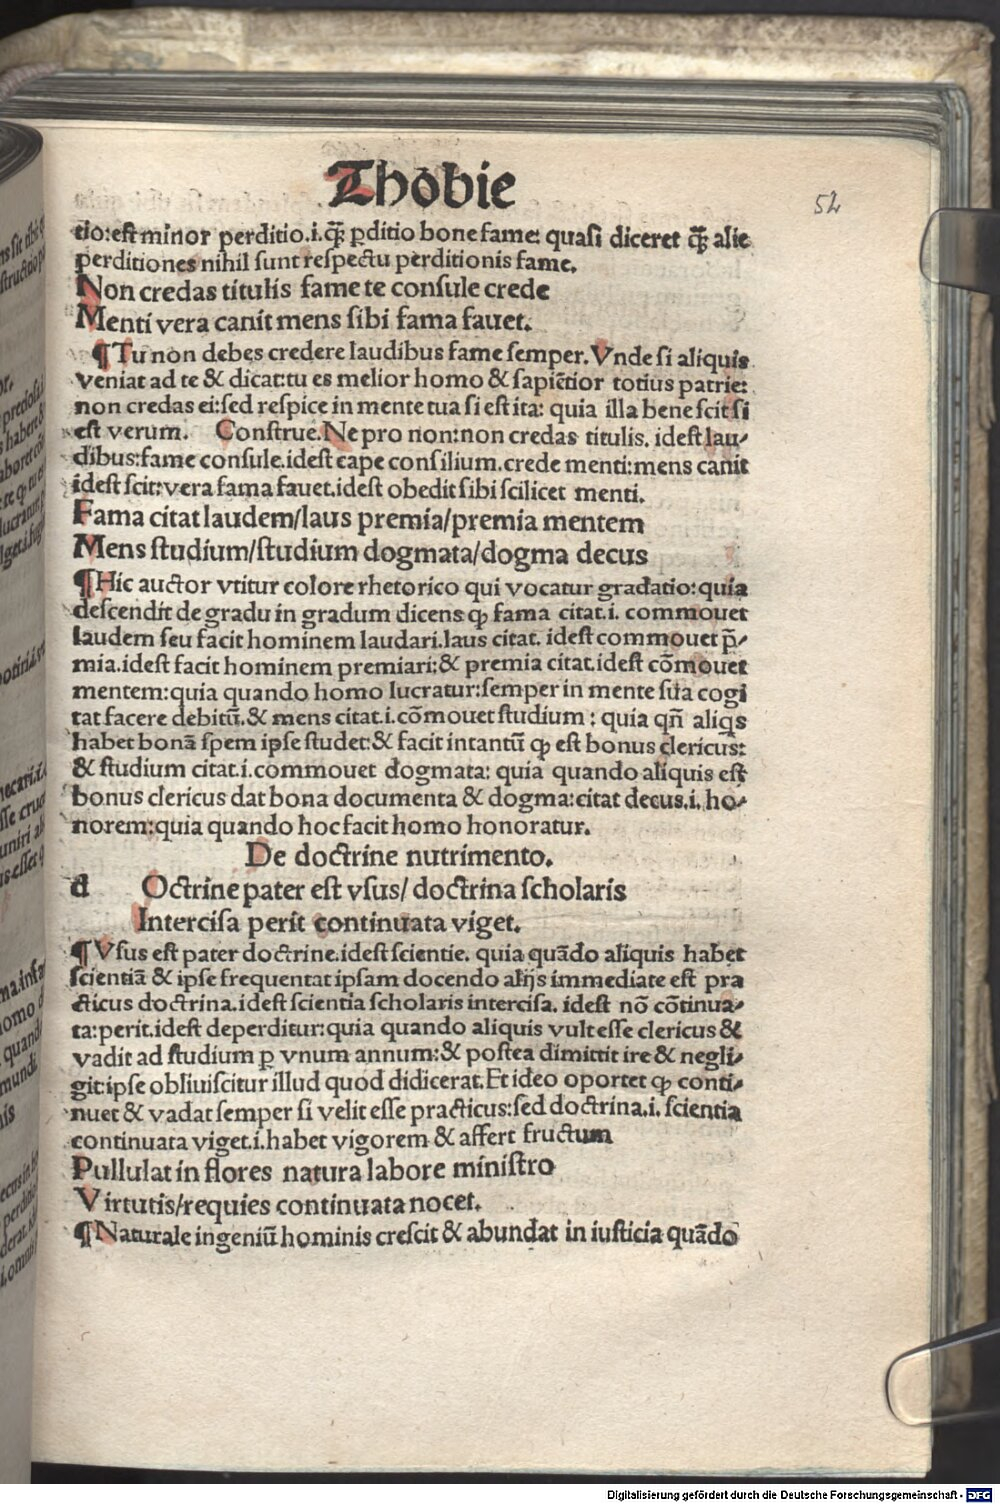 Thobie
52
tio:est minor perditio.i.q̃ꝫ ꝑditio bone fame: quasi diceret q̃ꝫ alie
perditiones nihil sunt respectu perditionis fame.
Non credas titulis fame te consule crede
Menti vera canit mens sibi fama fauet.
¶Tu non debes credere laudibus fame semper. Vnde si aliquis
veniat ad te & dicat:tu es melior homo & sapiẽtior totius patrie:
non credas ei:sed respice in mente tua si est ita: quia illa bene scit si
est verum. Construe. Ne pro non:non credas titulis. idest lau⸗
dibus:fame consule.idest cape consilium.crede menti:mens canit
idest scit:vera fama fauet.idest obedit sibi scilicet menti.
Fama citat laudem/laus premia/premia mentem
Mens studium/studium dogmata/dogma decus
¶Hic auctor vtitur colore rhetorico qui vocatur gradatio:quia
descendit de gradu in gradum dicens ꝙ fama citat.i. commouet
laudem seu facit hominem laudari.laus citat. idest commouet p̃⸗
mia.idest facit hominem premiari:& premia citat.idest cõmouet
mentem:quia quando homo lucratur:semper in mente sua cogi
tat facere debitũ.& mens citat.i.cõmouet studium : quia qñ aliqs
habet bonã spem ipse studet:& facit intantũ ꝙ est bonus clericus:
& studium citat.i.commouet dogmata: quia quando aliquis est
bonus clericus dat bona documenta & dogma:citat decus.i. ho⸗
norem:quia quando hoc facit homo honoratur.
De doctrine nutrimento.
d Octrine pater est vsus/ doctrina scholaris
Intercisa perit continuata viget.
¶Vsus est pater doctrine.idest scientie. quia quãdo aliquis habet
scientiã & ipse frequentat ipsam docendo alijs immediate est pra
cticus doctrina.idest scientia scholaris intercisa. idest nõ cõtinua⸗
ta:perit.idest deperditur:quia quando aliquis vult esse clericus &
vadit ad studium ꝑ vnum annum:& postea dimittit ire & negli⸗
git:ipse obliuiscitur illud quod didicerat.Et ideo oportet ꝙ conti⸗
nuet & vadat semper si velit esse practicus:sed doctrina.i. scientia
continuata viget.i.habet vigorem & affert fructum
Pullulat in flores natura labore ministro
Virtutis/requies continuata nocet.
¶Naturale ingeniũ hominis crescit & abundat in iusticia quãdo
Digitalisierung gefördert durch die Deutsche Forschungsgemeinschaft - DFG